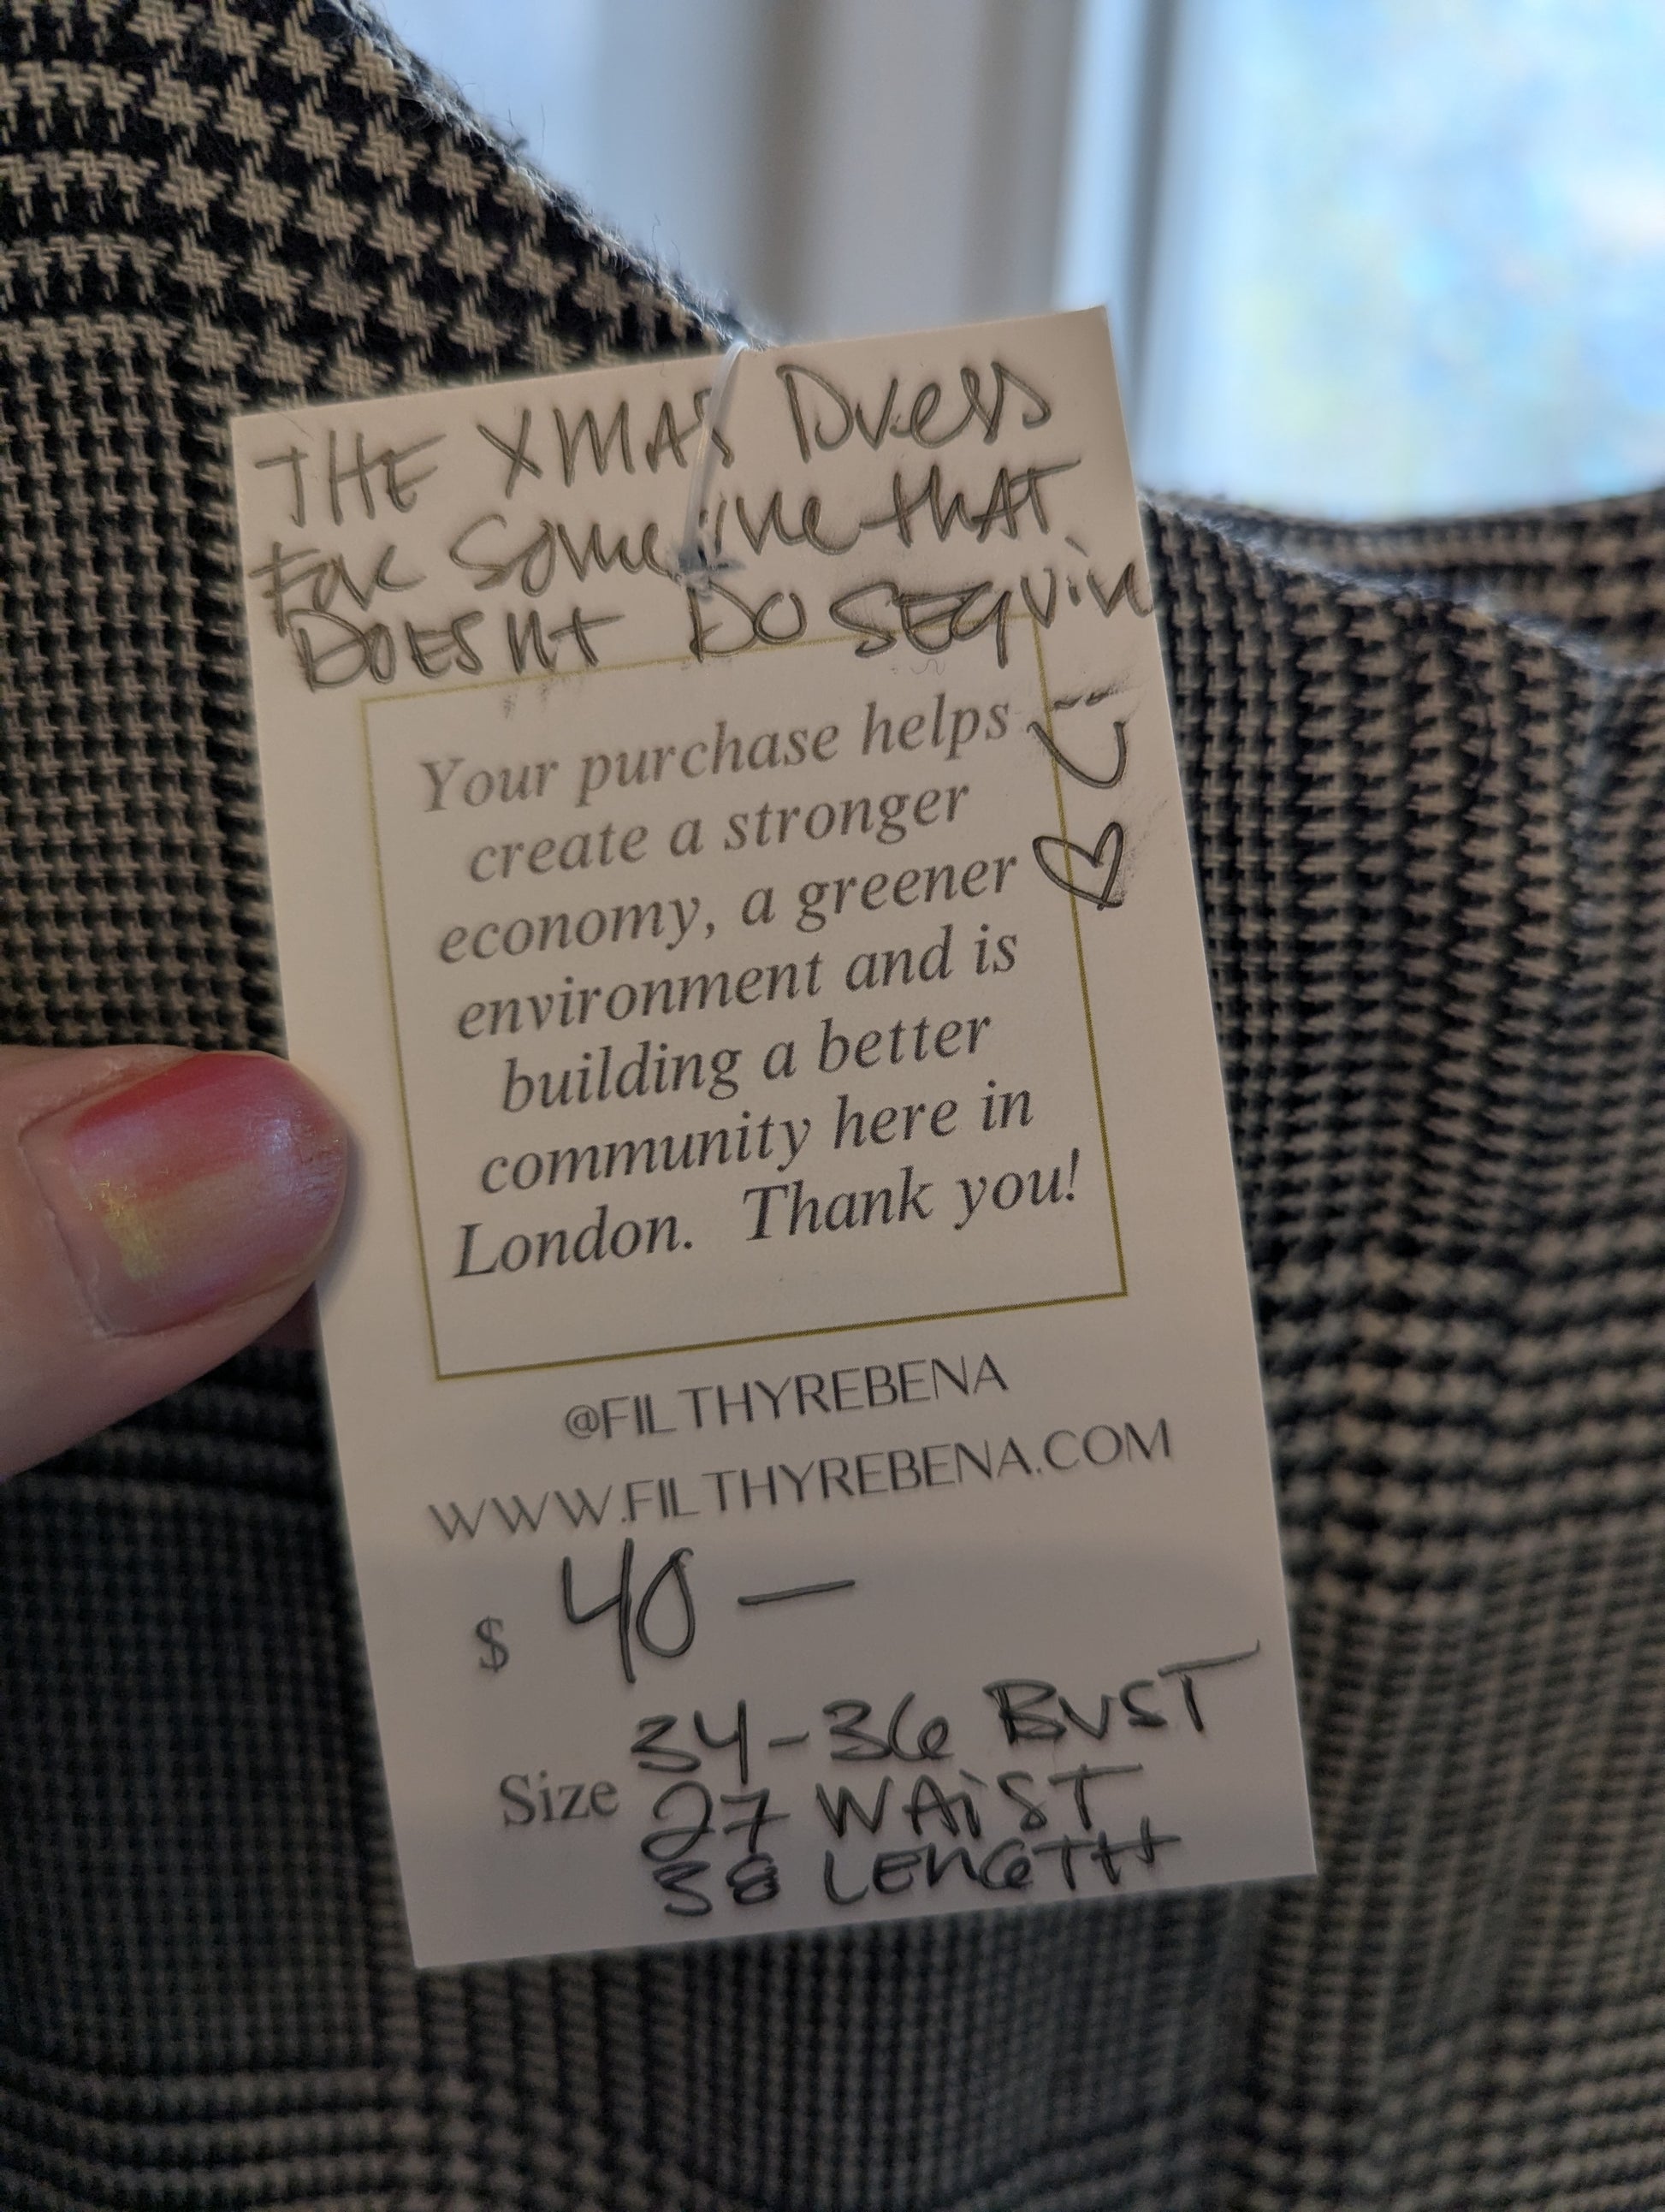 THE XMAS Dress
For Someone that
DOESNt DO SEQUiN
Your purchase helps
create a stronger
economy, a greener
environment and is
building a better
community here in
London. Thank you!
@FILTHYREBENA
WWW.FILTHYREBENA.COM
$ 40 —
34-36 BUST
Size 27 WAiST
38 LENGTH